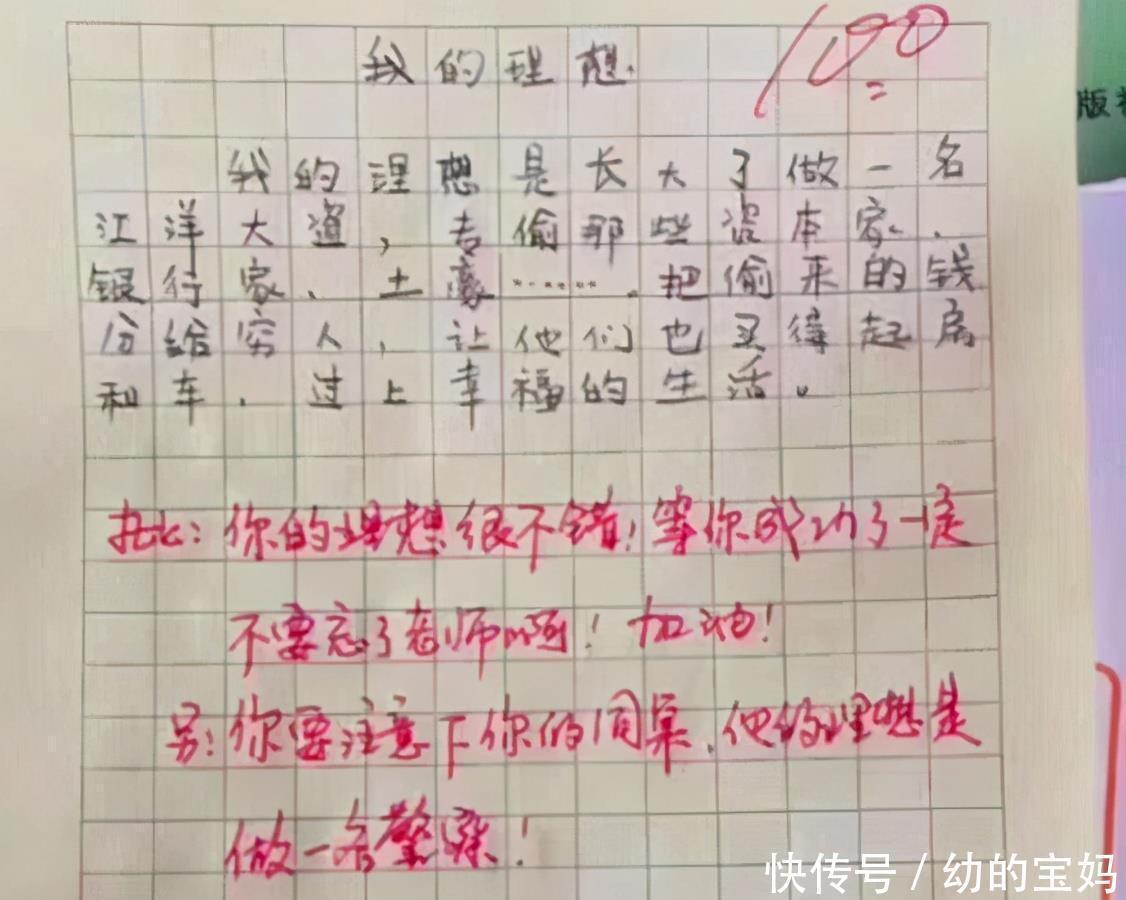 我的理想.
100
我的理想是长大了做一名
江洋大道，专偷那些资本家、
银行家、土豪……。把偷来的钱
份给穷人，让他们也买得起房
和车.过上幸福的生活。
批：你的理想很不错！等你成功了一定
不要忘了老师啊！加油！
另：你要注意下你的同桌，他的理想是
做一名警察！
版
快传号 / 幼的宝妈